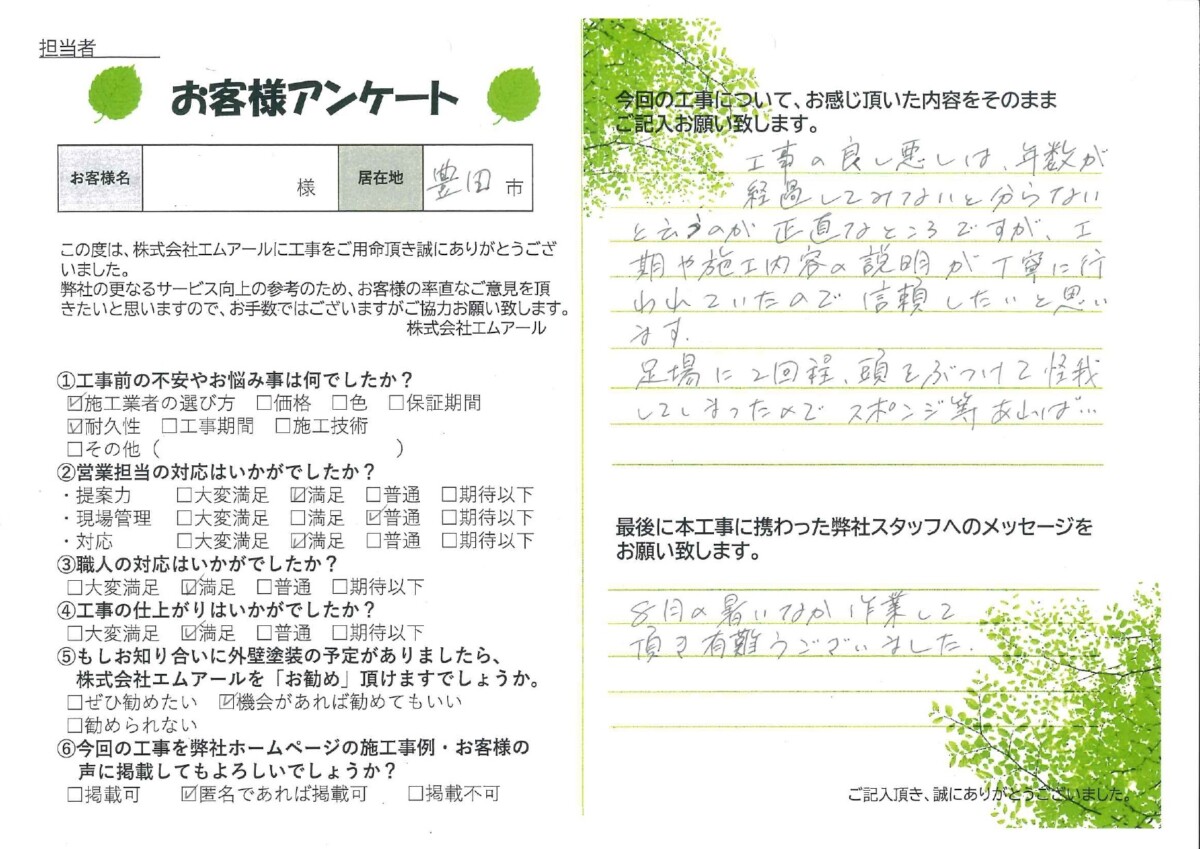 担当者
お客様アンケート
お客様名 様 居在地 豊田 市
この度は、株式会社エムアールに工事をご用命頂き誠にありがとうござ
いました。
弊社の更なるサービス向上の参考のため、お客様の率直なご意見を頂
きたいと思いますので、お手数ではございますがご協力お願い致します。
株式会社エムアール
①工事前の不安やお悩み事は何でしたか？
☑施工業者の選び方 □価格 □色 □保証期間
☑耐久性 □工事期間 □施工技術
□その他（ ）
②営業担当の対応はいかがでしたか？
・提案力 □大変満足 ☑満足 □普通 □期待以下
・現場管理 □大変満足 □満足 ☑普通 □期待以下
・対応 □大変満足 ☑満足 □普通 □期待以下
③職人の対応はいかがでしたか？
□大変満足 ☑満足 □普通 □期待以下
④工事の仕上がりはいかがでしたか？
□大変満足 ☑満足 □普通 □期待以下
⑤もしお知り合いに外壁塗装の予定がありましたら、
株式会社エムアールを「お勧め」頂けますでしょうか。
□ぜひ勧めたい ☑機会があれば勧めてもいい
□勧められない
⑥今回の工事を弊社ホームページの施工事例・お客様の
声に掲載してもよろしいでしょうか？
□掲載可 ☑匿名であれば掲載可 □掲載不可
今回の工事について、お感じ頂いた内容をそのまま
ご記入お願い致します。
工事の良し悪しは、年数が
経過してみてないと分らない
と云うのが正直なところですが、工
期や施工内容の説明が丁寧に行
われていたので信頼したいと思い
ます.
足場に2回程、頭をぶつけて怪我
してしまったのでスポンジ等あれば…
最後に本工事に携わった弊社スタッフへのメッセージを
お願い致します。
8月の暑いなか作業して
頂き有難うございました.
ご記入頂き、誠にありがとうございました。